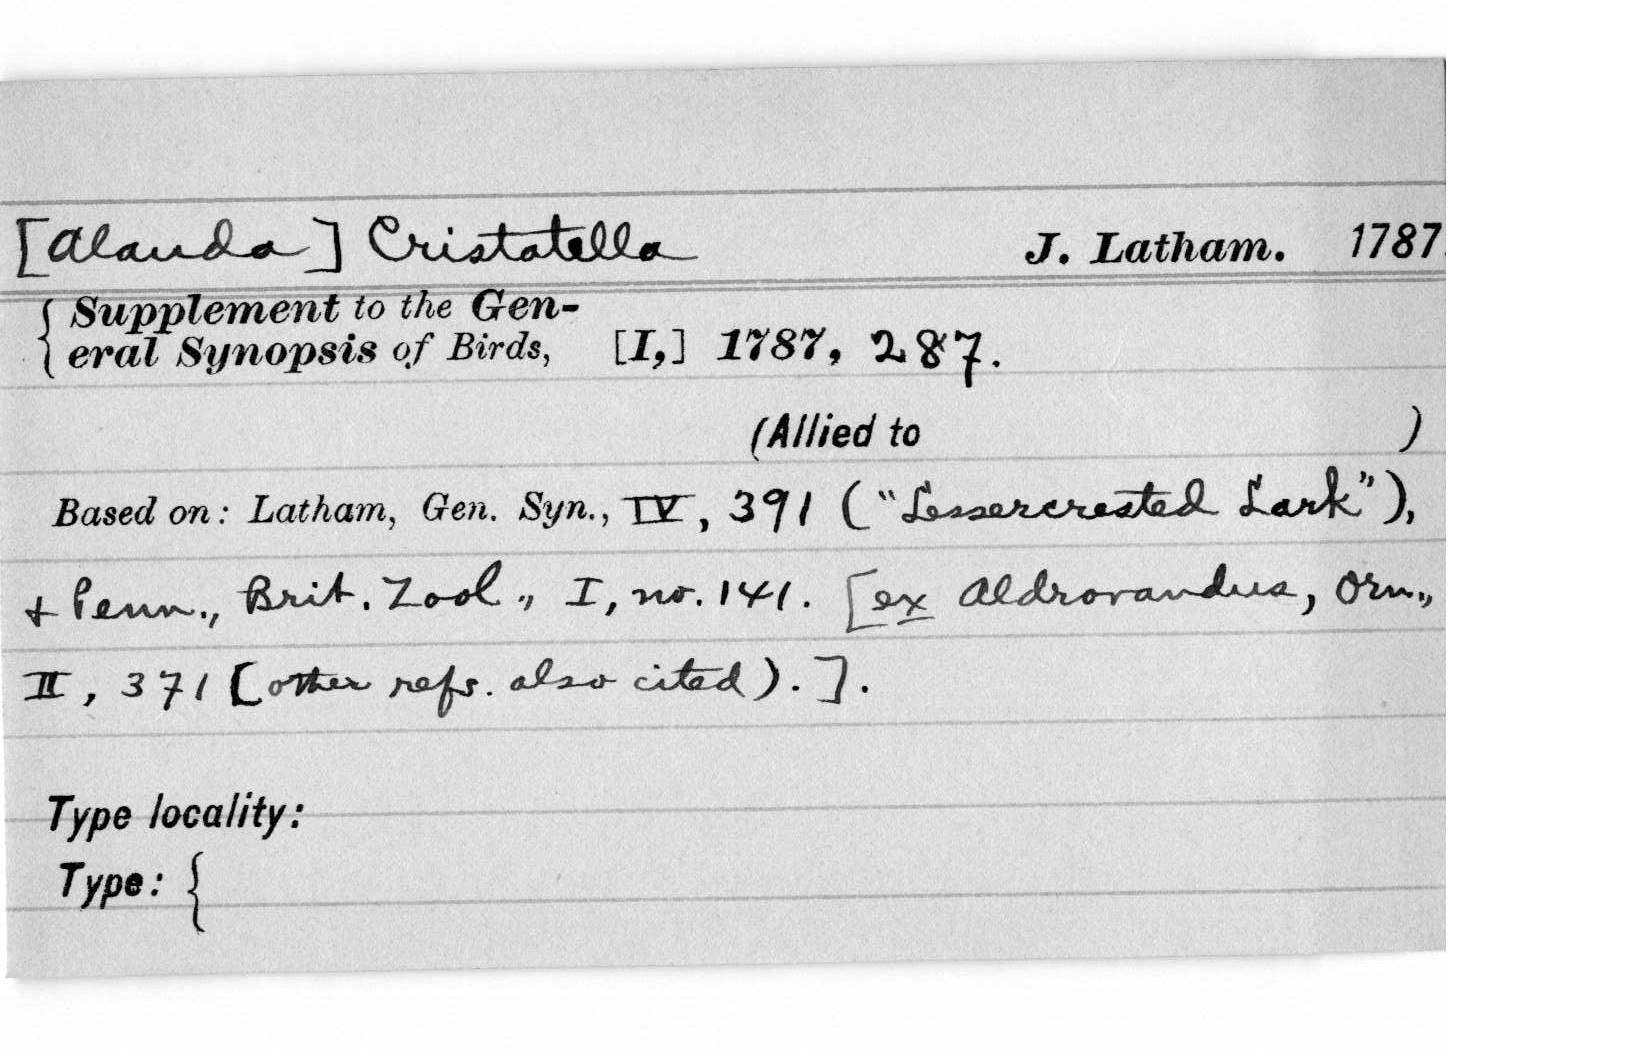 [Alauda] Cristatella J. Latham. 1787.
{ Supplement to the Gen-
eral Synopsis of Birds, [I,] 1787, 287.
(Allied to )
Based on: Latham, Gen. Syn., IV, 391 ("Lessercrested Lark"),
+ Penn., Brit. Zool., I, no. 141. [ex Aldrovandus, Orn.,
II, 371 [other refs. also cited). ].
Type locality:
Type: {